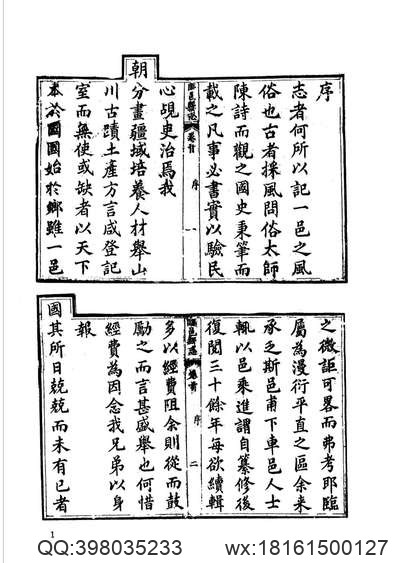 序
志者何所以記一邑之風
俗也古者採風問俗太師
陳詩而觀之國史秉筆而
載之凡事必書實以驗民
臨邑縣志 卷首 序 一
心覘吏治焉我
朝分畫疆域培養人材舉山
川古蹟土產方言咸登記
室而無使或缺者以天下
本於國國始於鄉雖一邑
之微詎可畧而弗考耶臨
屬為漫衍平直之區余來
承乏斯邑甫下車邑人士
輒以邑乘進謂自纂修後
復閱三十餘年每欲續輯
臨邑縣志 卷首 序 二
多以經費阻余則從而鼓
勵之而言甚盛舉也何惜
經費為因念我兄弟以身
報
國其所日兢兢而未有已者
1
QQ:398035233 wx:18161500127